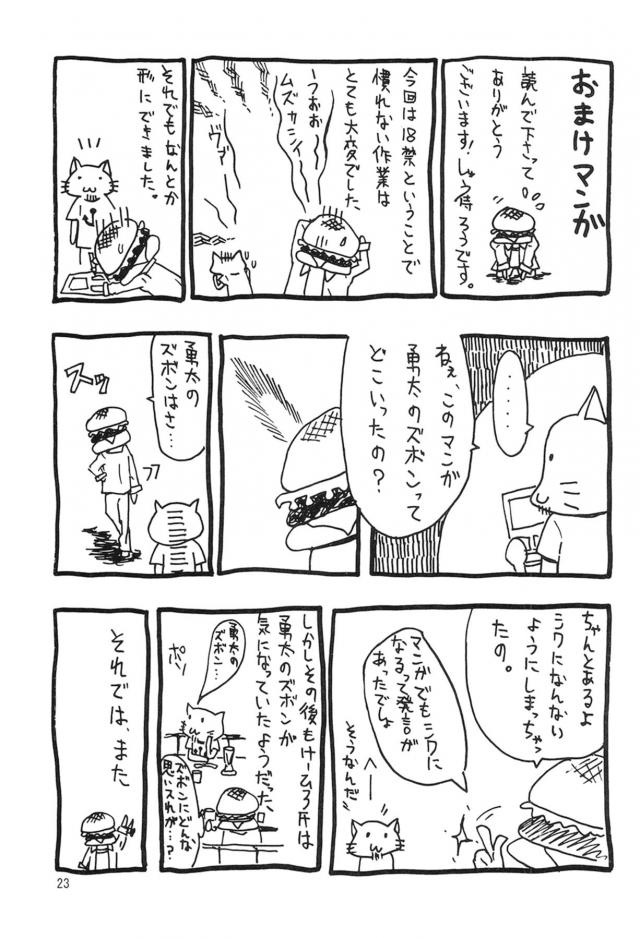 おまけマンガ
読んで下さって
ありがとう
ございます！しゅう侍ろうです。
今回は18禁ということで
慣れない作業は
とても大変でした
うおお
ムズカシー
ヴァー
それでもなんとか
形にできました。
・・・・
ねぇ、このマンガ
勇太のズボンって
どこいったの？
勇太の
ズボンはさ…
スッ
フフ
ちゃんとあるよ
シワになんない
ようにしまっちゃっ
たの。
マンガでもシワに
なるって発言が
あったでしょ
へー
そうなんだ
しかしその後もけーひろ氏は
勇太のズボンが
気になっていたようだった、
勇太の
ズボン…
ポソ
ズボンにどんな
思い入れが…？
それでは、また
23